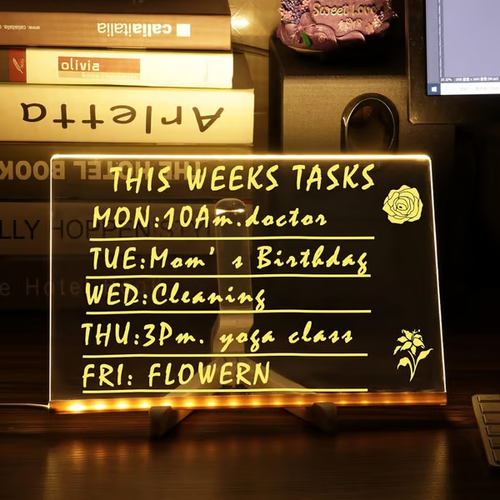 Sweet Love
callaitalia
olivia
Arletta
THE HOTEL BOOK
LLY HOPPEN
e Hotel
THIS WEEKS TASKS
MON:10Am.doctor
TUE:Mom's Birthday
WED:Cleaning
THU:3Pm. yoga class
FRI: FLOWERN